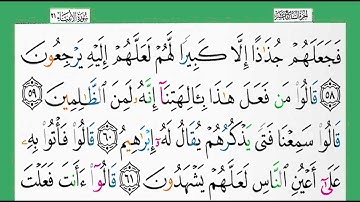 سورة الأنبياء ٢١
فَجَعَلَهُمْ جُذَٰذًا إِلَّا كَبِيرًا لَّهُمْ لَعَلَّهُمْ إِلَيْهِ يَرْجِعُونَ
٥٨ قَالُوا۟ مَن فَعَلَ هَٰذَا بِـَٔالِهَتِنَآ إِنَّهُۥ لَمِنَ ٱلظَّٰلِمِينَ ٥٩
قَالُوا۟ سَمِعْنَا فَتًى يَذْكُرُهُمْ يُقَالُ لَهُۥٓ إِبْرَٰهِيمُ ٦٠ قَالُوا۟ فَأْتُوا۟ بِهِۦ
عَلَىٰٓ أَعْيُنِ ٱلنَّاسِ لَعَلَّهُمْ يَشْهَدُونَ ٦١ قَالُوٓا۟ ءَأَنتَ فَعَلْتَ